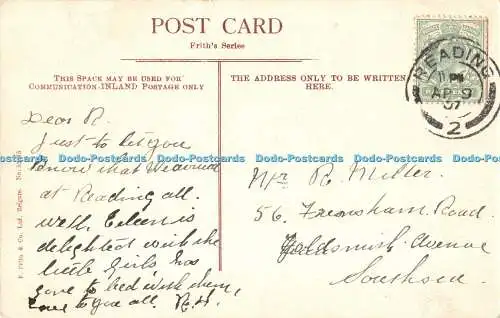 POST CARD
Frith's Series
THIS SPACE MAY BE USED FOR
COMMUNICATION INLAND POSTAGE ONLY
THE ADDRESS ONLY TO BE WRITTEN
HERE.
READING
11 PM
AP 9
07
2
Dear R.
Just to let you
know that we arrived
at Reading all
well, Eileen is
delighted with the
little girls has
gone to bed with them,
Love to you all. R.H.
F. Frith & Co. Ltd., Reigate. No.
Mr R. Miller
56. Frensham Road
Goldsmith Avenue
Southsea
Dodo-Postcards Dodo-Postcards Dodo-Postcards Dodo-Postcards Dodo-Postcards Dodo-Postcards